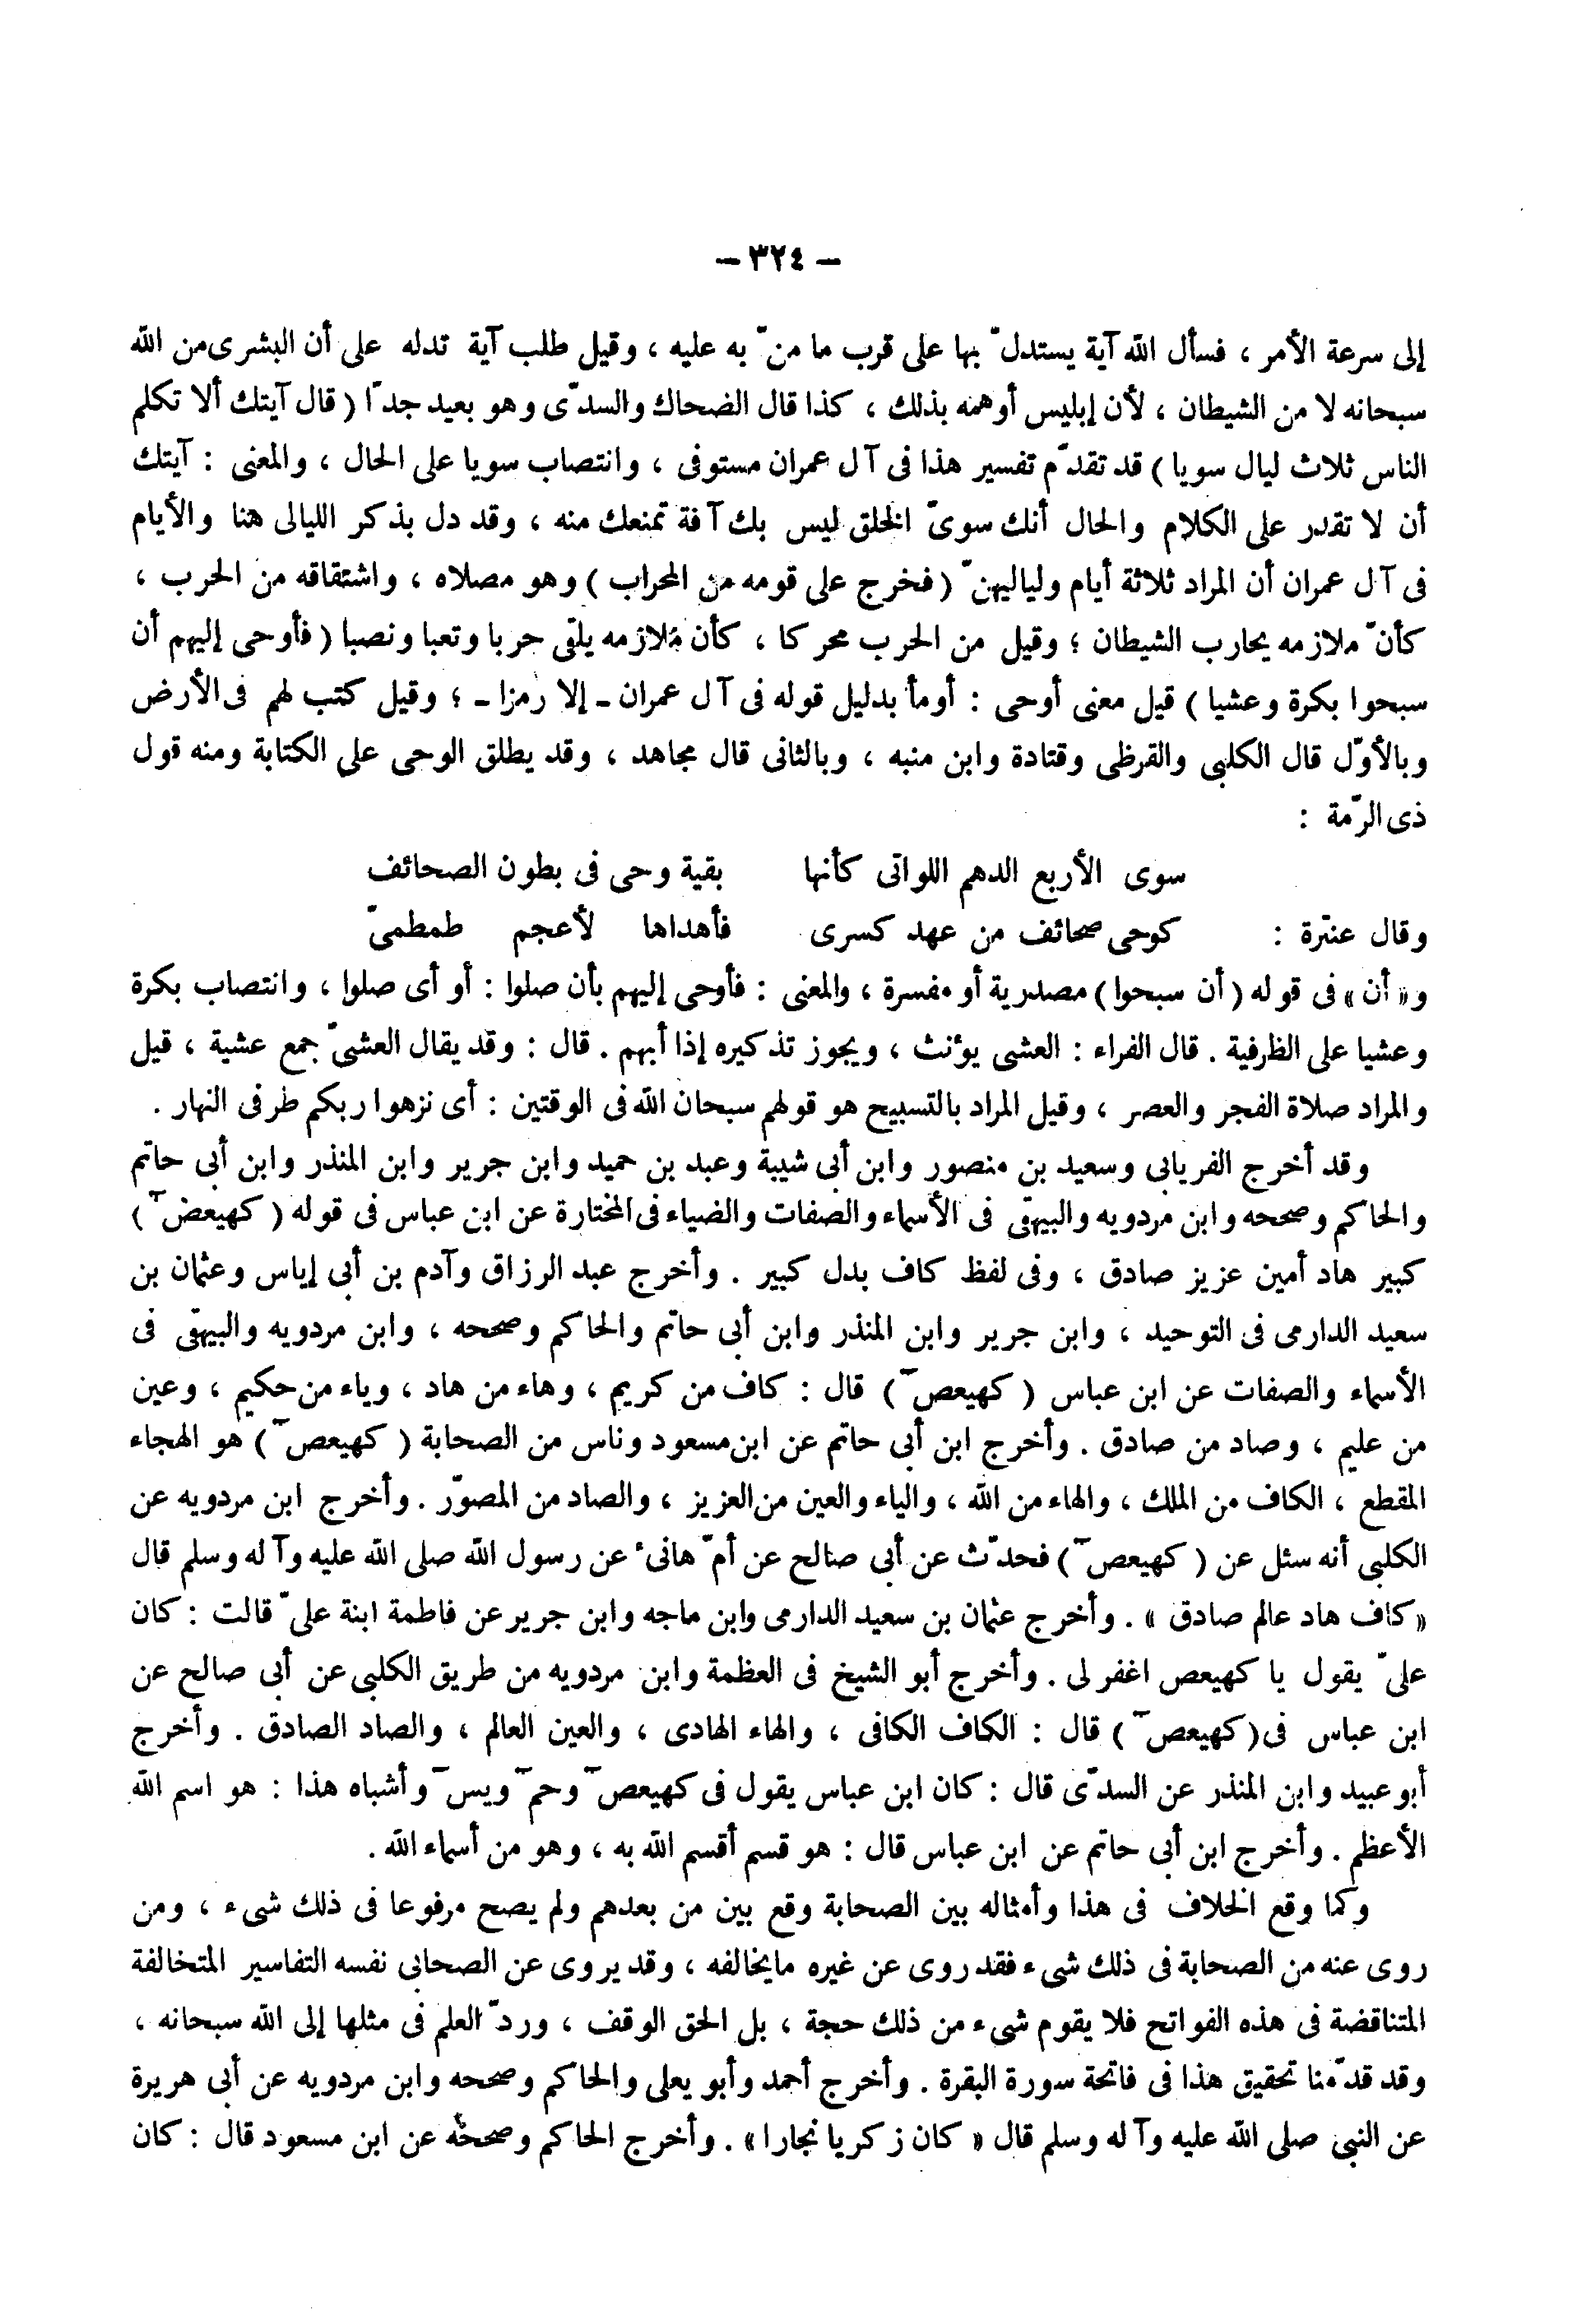 — ٣٢٤ —
إلى سرعة الأمر ، فسأل الله آية يستدلّ بها على قرب ما منّ به عليه ، وقيل طلب آية تدله على أن البشرى من الله
سبحانه لا من الشيطان ، لأن إبليس أوهمه بذلك ، كذا قال الضحاك والسدّى وهو بعيد جدّا ( قال آيتك ألا تكلم
الناس ثلاث ليال سويا ) قد تقدّم تفسير هذا فى آل عمران مستوفى ، وانتصاب سويا على الحال ، والمعنى : آيتك
أن لا تقدر على الكلام والحال أنك سوىّ الخلق ليس بك آفة تمنعك منه ، وقد دل بذكر الليالى هنا والأيام
فى آل عمران أن المراد ثلاثة أيام ولياليهنّ ( فخرج على قومه من المحراب ) وهو مصلاه ، واشتقاقه من الحرب ،
كأنّ ملازمه يحارب الشيطان ؛ وقيل من الحرب محركا ، كأن ملازمه يلقى حربا وتعبا ونصبا ( فأوحى إليهم أن
سبحوا بكرة وعشيا ) قيل معنى أوحى : أومأ بدليل قوله فى آل عمران ـ إلا رمزا ـ ؛ وقيل كتب لهم فى الأرض
وبالأوّل قال الكلبى والقرظى وقتادة وابن منبه ، وبالثانى قال مجاهد ، وقد يطلق الوحى على الكتابة ومنه قول
ذى الرّمة :
سوى الأربع الدهم اللواتى كأنها بقية وحى فى بطون الصحائف
وقال عنترة : كوحى صحائف من عهد كسرى فأهداها لأعجم طمطمىّ
و« أن » فى قوله ( أن سبحوا ) مصدرية أو مفسرة ، والمعنى : فأوحى إليهم بأن صلوا : أو أى صلوا ، وانتصاب بكرة
وعشيا على الظرفية . قال الفراء : العشى يؤنث ، ويجوز تذكيره إذا أبهم . قال : وقد يقال العشىّ جمع عشية ، قيل
والمراد صلاة الفجر والعصر ، وقيل المراد بالتسبيح هو قولهم سبحان الله فى الوقتين : أى نزهوا ربكم طرفى النهار .
وقد أخرج الفريابى وسعيد بن منصور وابن أبى شيبة وعبد بن حميد وابن جرير وابن المنذر وابن أبى حاتم
والحاكم وصححه وابن مردويه والبيهقى فى الأسماء والصفات والضياء فى المختارة عن ابن عباس فى قوله ( كهيعص~ )
كبير هاد أمين عزيز صادق ، وفى لفظ كاف بدل كبير . وأخرج عبد الرزاق وآدم بن أبى إياس وعثمان بن
سعيد الدارمى فى التوحيد ، وابن جرير وابن المنذر وابن أبى حاتم والحاكم وصححه ، وابن مردويه والبيهقى فى
الأسماء والصفات عن ابن عباس ( كهيعص~ ) قال : كاف من كريم ، وهاء من هاد ، وياء من حكيم ، وعين
من عليم ، وصاد من صادق . وأخرج ابن أبى حاتم عن ابن مسعود وناس من الصحابة ( كهيعص~ ) هو الهجاء
المقطع ، الكاف من الملك ، والهاء من الله ، والياء والعين من العزيز ، والصاد من المصوّر . وأخرج ابن مردويه عن
الكلبى أنه سئل عن ( كهيعص~ ) فحدّث عن أبى صالح عن أمّ هانئ عن رسول الله صلى الله عليه وآله وسلم قال
« كاف هاد عالم صادق » . وأخرج عثمان بن سعيد الدارمى وابن ماجه وابن جرير عن فاطمة ابنة علىّ قالت : كان
علىّ يقول يا كهيعص اغفر لى . وأخرج أبو الشيخ فى العظمة وابن مردويه من طريق الكلبى عن أبى صالح عن
ابن عباس فى ( كهيعص~ ) قال : الكاف الكافى ، والهاء الهادى ، والعين العالم ، والصاد الصادق . وأخرج
أبو عبيد وابن المنذر عن السدّى قال : كان ابن عباس يقول فى كهيعص~ وحم~ ويس~ وأشباه هذا : هو اسم الله
الأعظم . وأخرج ابن أبى حاتم عن ابن عباس قال : هو قسم أقسم الله به ، وهو من أسماء الله .
وكما وقع الخلاف فى هذا وأمثاله بين الصحابة وقع بين من بعدهم ولم يصح مرفوعا فى ذلك شىء ، ومن
روى عنه من الصحابة فى ذلك شىء فقد روى عن غيره مايخالفه ، وقد يروى عن الصحابى نفسه التفاسير المتخالفة
المتناقضة فى هذه الفواتح فلا يقوم شىء من ذلك حجة ، بل الحق الوقف ، وردّ العلم فى مثلها إلى الله سبحانه ،
وقد قدّمنا تحقيق هذا فى فاتحة سورة البقرة . وأخرج أحمد وأبو يعلى والحاكم وصححه وابن مردويه عن أبى هريرة
عن النبى صلى الله عليه وآله وسلم قال « كان زكريا نجارا » . وأخرج الحاكم وصححه عن ابن مسعود قال : كان